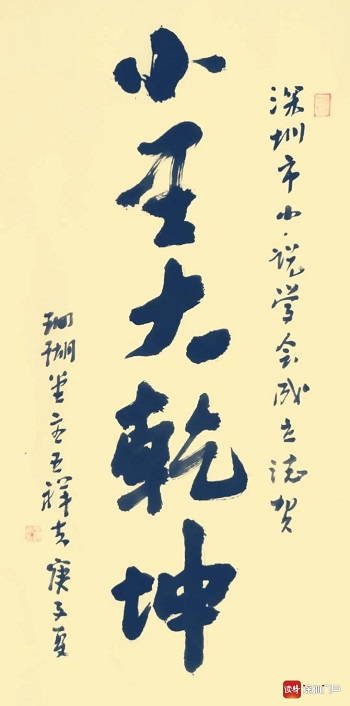 深圳市小说学会成立誌贺
小大乾坤
珊瑚堂主王祥之庚子夏
读特 深圳门户